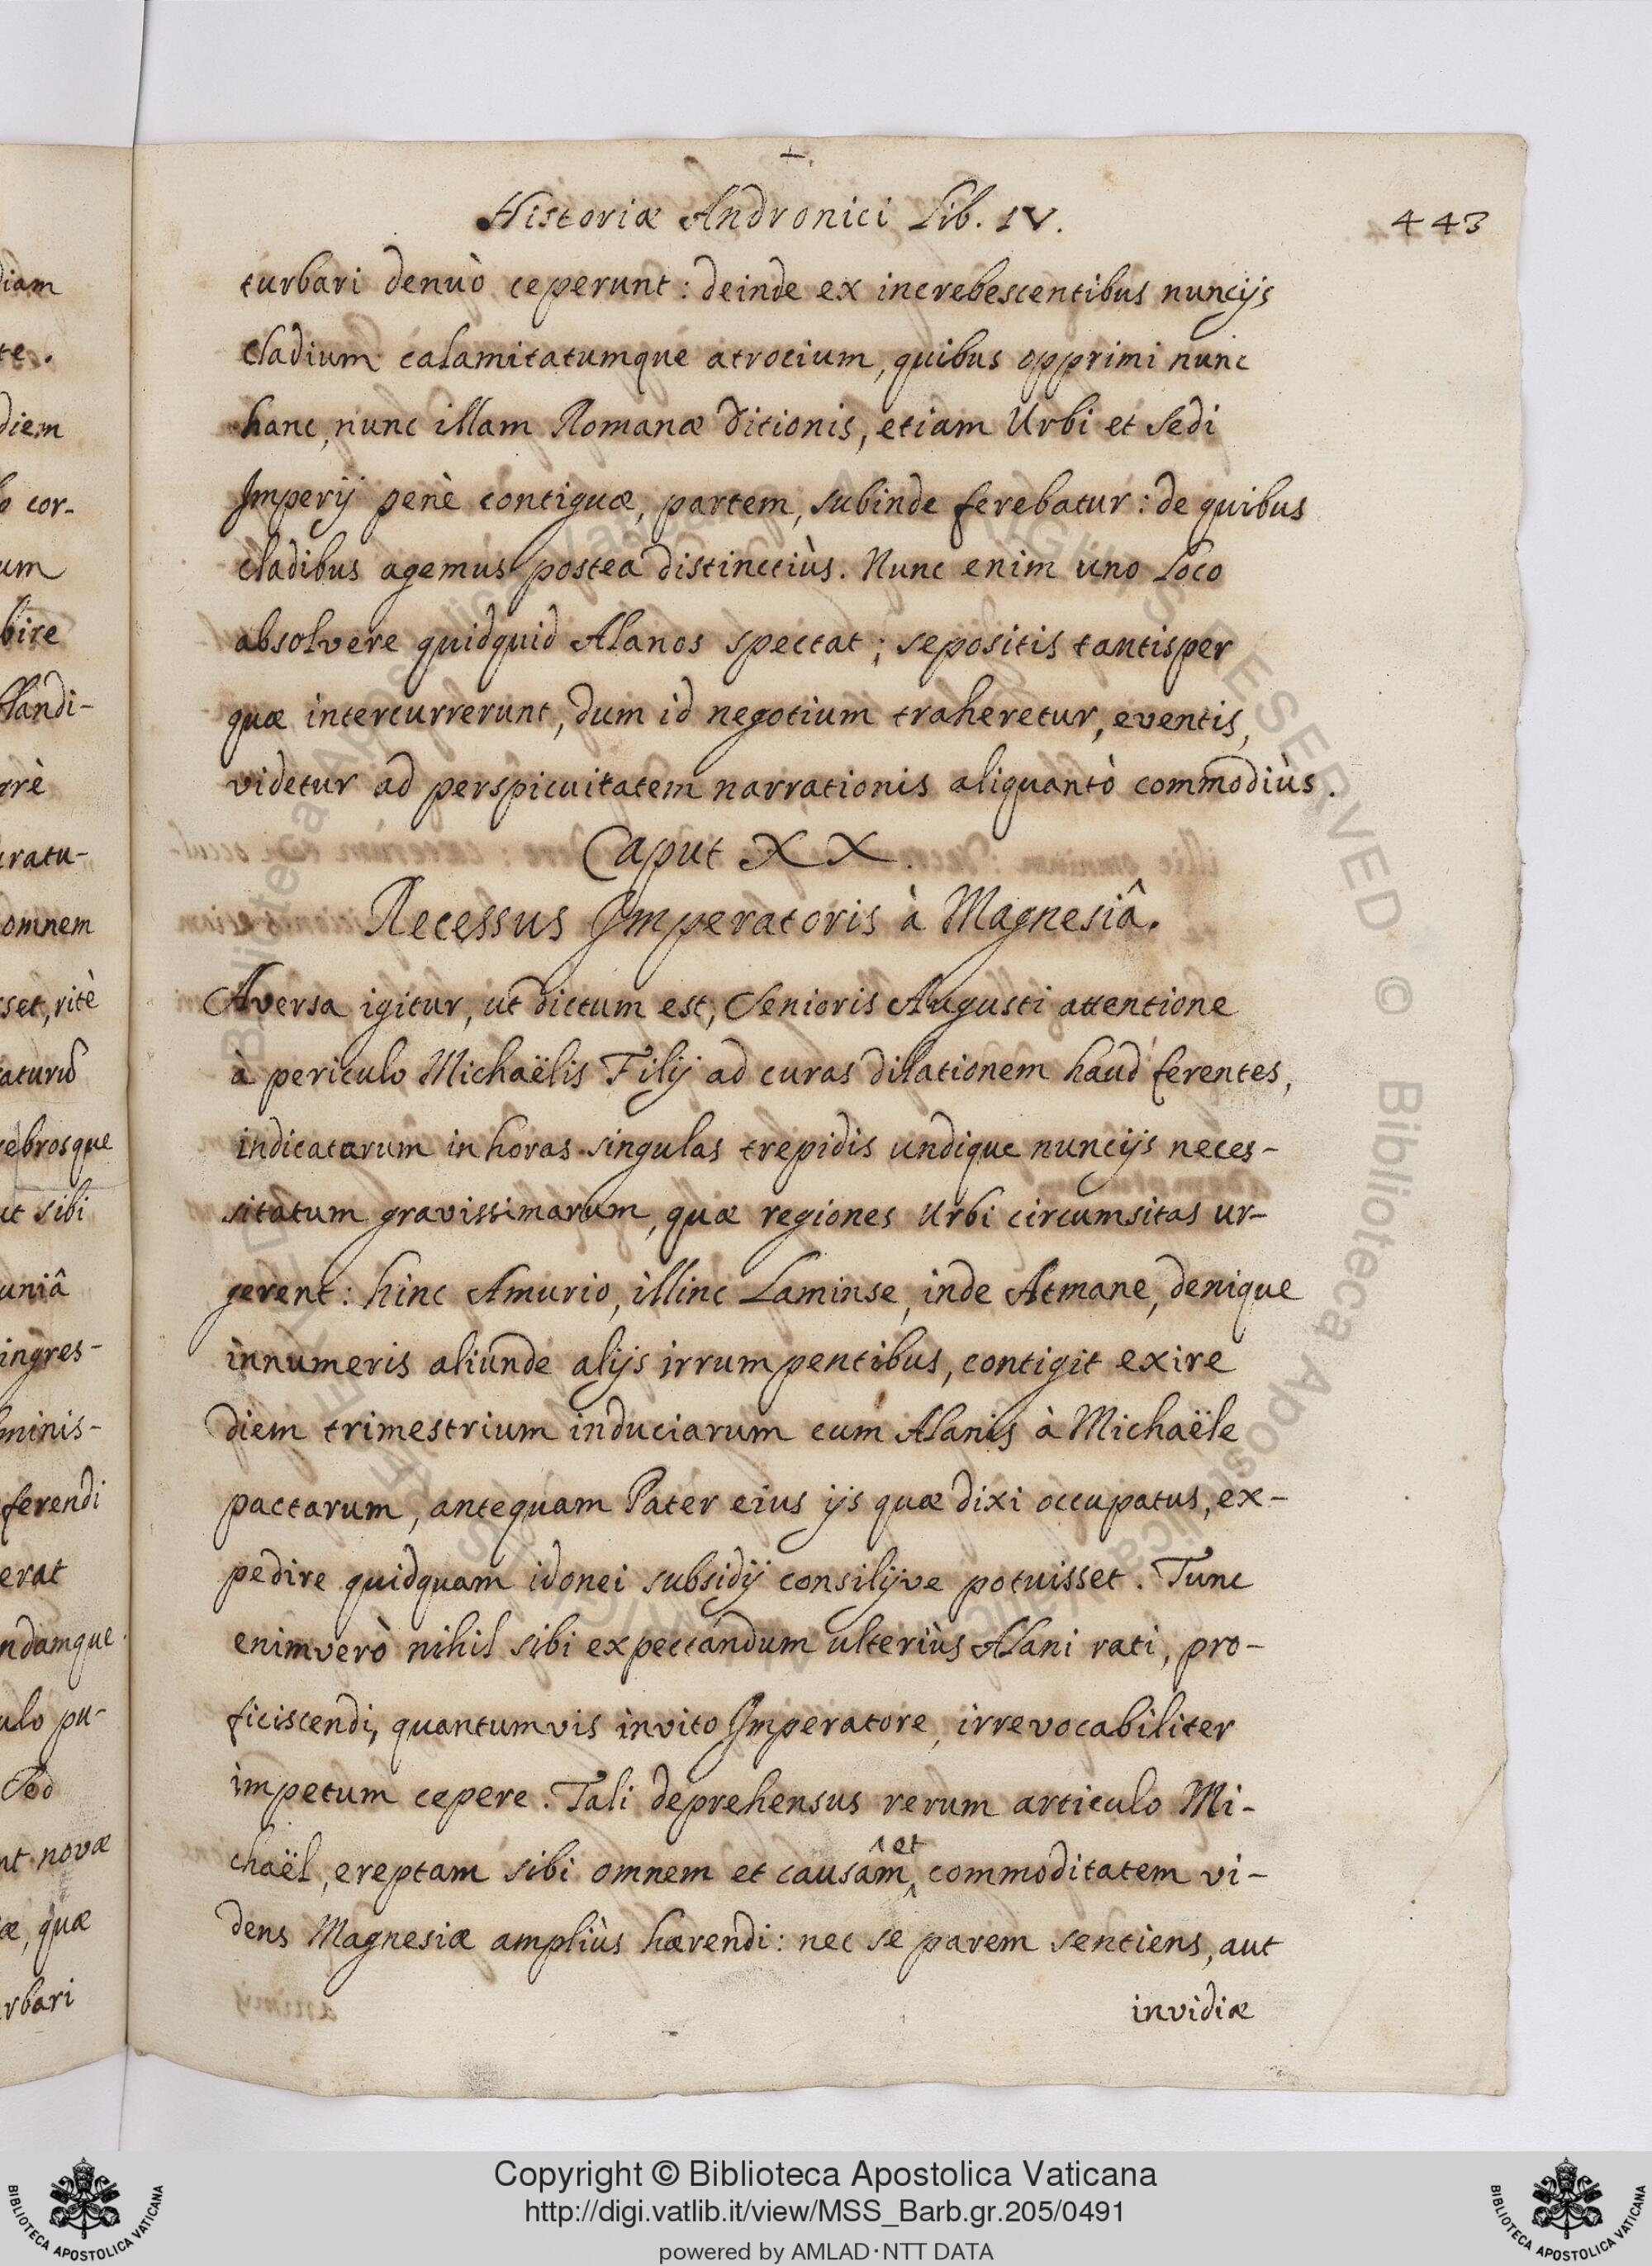 Historiæ Andronici Lib. IV.
443
turbari denuò ceperunt: deinde ex increbescentibus nuncijs
cladium calamitatumque atrocium, quibus opprimi nunc
hanc, nunc illam Romanæ ditionis, etiam Urbi et Sedi
Imperij penè contiguæ, partem, subinde ferebatur: de quibus
cladibus agemus postea distinctiùs. Nunc enim uno Loco
absolvere quidquid Alanos spectat; sepositis tantisper
quæ intercurrerunt, dum id negotium traheretur, eventis,
videtur ad perspicuitatem narrationis aliquantò commodiùs.
Caput XX.
Recessus Imperatoris à Magnesiâ.
Aversa igitur, ut dictum est, Senioris Augusti attentione
à periculo Michaëlis Filij ad curas dilationem haud ferentes,
indicatarum in horas singulas trepidis undique nuncijs neces-
sitatum gravissimarum, quæ regiones Urbi circumsitas ur-
gerent: hinc Amurio, illinc Laminse, inde Atmane, denique
innumeris aliunde alijs irrumpentibus, contigit exire
diem trimestrium induciarum cum Alanis à Michaële
pactarum, antequam Pater eius ijs quæ dixi occupatus, ex-
pedire quidquam idonei subsidij consilijve potuisset. Tunc
enimverò nihil sibi expectandum ulteriùs Alani rati, pro-
ficiscendi, quantumvis invito Imperatore, irrevocabiliter
impetum cepere. Tali deprehensus rerum articulo Mi-
chaël, ereptam sibi omnem et causâm, ^et commoditatem vi-
dens Magnesiæ ampliùs hærendi: nec se parem sentiens, aut
invidiæ
diam
te.
diem
cor-
um
bire
blandi-
rrè
uratu-
omnem
set, ritè
rebrosque
ut sibi
uniâ
ingres-
minis-
ferendi
erat
ndamque
ulo pu-
Sed
nt novæ
æ, quæ
rbari
Copyright © Biblioteca Apostolica Vaticana
http://digi.vatlib.it/view/MSS_Barb.gr.205/0491
powered by AMLAD·NTT DATA
BIBLIOTECA APOSTOLICA VATICANA
BIBLIOTECA APOSTOLICA VATICANA